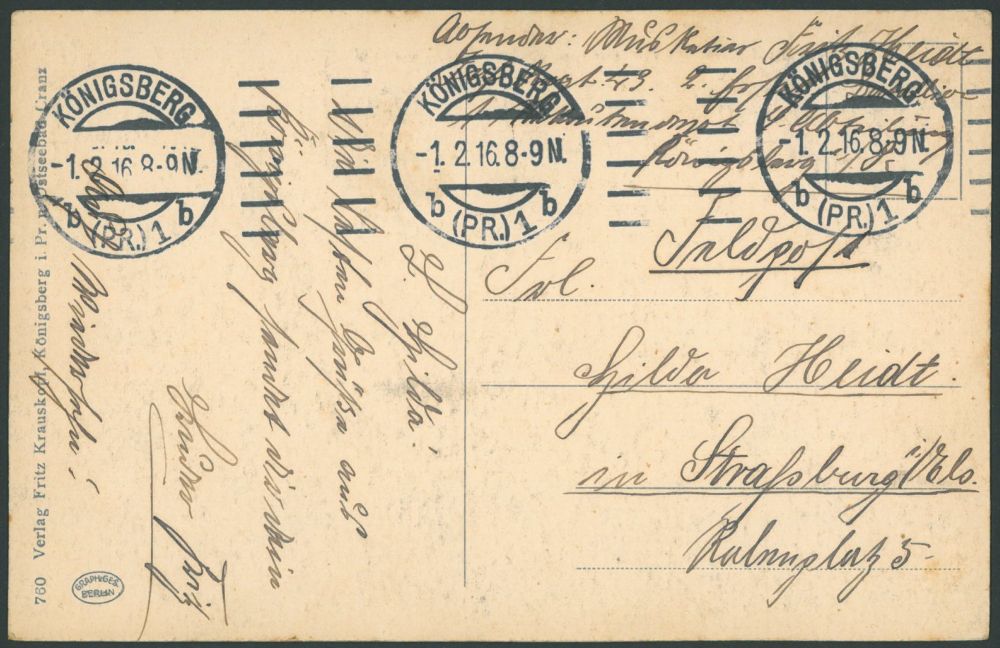 Absender: Musketier Fritz Heidt
Regt. 43. 2.
Königsberg i/Pr.
KÖNIGSBERG
-1.2.16.8-9N.
b (PR.) 1 b
KÖNIGSBERG
-1.2.16.8-9N.
b (PR.) 1 b
KÖNIGSBERG
-1.2.16.8-9N.
b (PR.) 1 b
Feldpost
Frl.
Hilda Heidt.
in Straßburg i/Els.
Rabenplatz 5
L. Hilda!
Viele liebe Grüße aus
Königsberg sendet dir dein
Bruder Fritz
Auf Wiedersehn!
760 Verlag Fritz Krauskopf, Königsberg i. Pr. u. Ostseebad Cranz
GRAPH.GES.
BERLIN